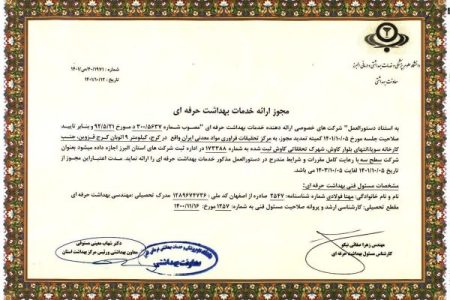 دانشگاه علوم پزشکی و خدمات بهداشتی درمانی البرز
معاونت بهداشتی
شماره : ۴۰/۱۹۷۱/ص/۱۴۰۱
تاریخ : ۱۴۰۱/۱۰/۱۲
مجوز ارائه خدمات بهداشت حرفه ای
به استناد دستورالعمل" شرکت های خصوصی ارائه دهنده خدمات بهداشت حرفه ای "مصوب شماره ۳۰۰/۵۶۳۷ د مورخ ۹۲/۵/۲۱ و بنابر تایید
صلاحیت جلسه مورخ ۱۴۰۱/۱۰/۰۵ کمیته تمدید مجوز، به مرکز تحقیقات فرآوری مواد معدنی ایران واقع در کرج، کیلومتر ۹ اتوبان کرج قزوین، جنب
کارخانه سوپابلنتهای بلوار کاوش، شهرک تحقیقاتی کاوش ثبت شده به شماره ۱۷۳۲۸۸ در اداره ثبت شرکت های استان البرز اجازه داده میشود بعنوان
شرکت سطح سه با رعایت کامل مقررات و شرایط مندرج در دستورالعمل مذکور خدمات بهداشت حرفه ای را ارائه نماید. مدت اعتبار این مجوز از
تاریخ ۱۴۰۱/۱۰/۰۵ لغایت ۱۴۰۳/۱۰/۰۵ می باشد.
مشخصات مسئول فنی بهداشت حرفه ای:
نام و نام خانوادگی: مهتا فولادی شماره شناسنامه: ۲۵۴۷ صادره از اصفهان کد ملی : ۱۲۸۹۶۷۴۷۳۶ مدرک تحصیلی: مهندسی بهداشت حرفه ای
مقطع تحصیلی: کارشناسی ارشد و پروانه صلاحیت مسئول فنی به شماره ۱۳۵۷ مورخ: ۱۴۰۰/۱۱/۱۶
مهندس زهرا صفائی نیکو
کارشناس مسئول بهداشت حرفه ای
معاونت بهداشتی
دکتر شهاب معینی مستوفی
معاون بهداشتی و رئیس مرکز بهداشت استان